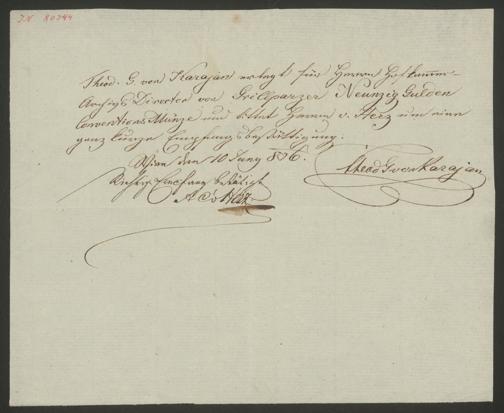 I.N. 80744
Theod. G. von Karajan erlegt für Herrn Hofkammer-
Archivs Director von Grillparzer Neunzig Gulden
Conventions Münze und bittet Herrn v.
ganz kurze Empfangsbestättigung.
Wien den 10 Juny 1836.
Theod G von Karajan
Richtigen Empfang bestätigt